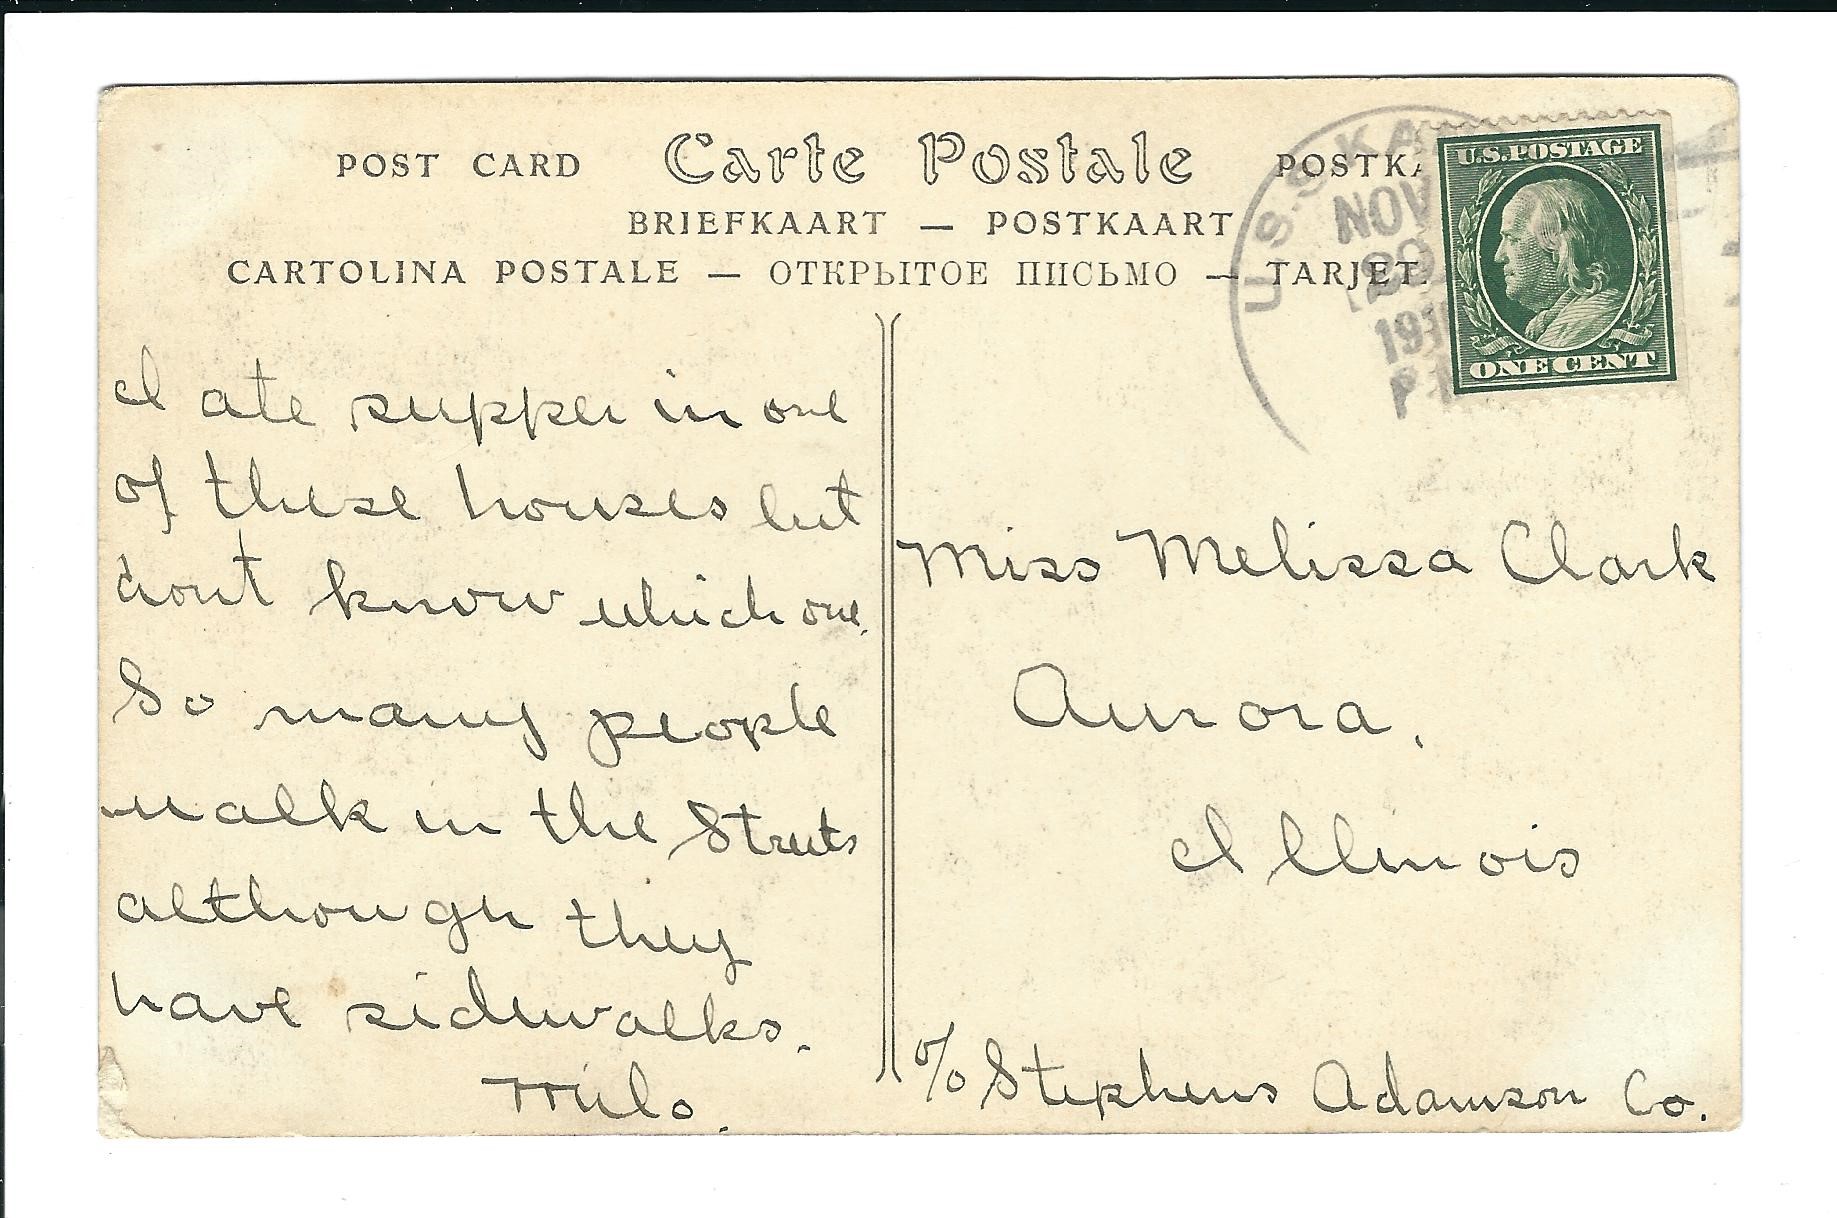 POST CARD Carte Postale POSTKA
BRIEFKAART — POSTKAART
CARTOLINA POSTALE — ОТКРЫТОЕ ПИСЬМО — TARJET
U.S.S. KA
NOV
29
191
P
U.S. POSTAGE
ONE CENT
I ate supper in one
of these houses but
dont know which one.
So many people
walk in the Streets
although they
have sidewalks.
Milo.
Miss Melissa Clark
Aurora,
Illinois
c/o Stephens Adamson Co.